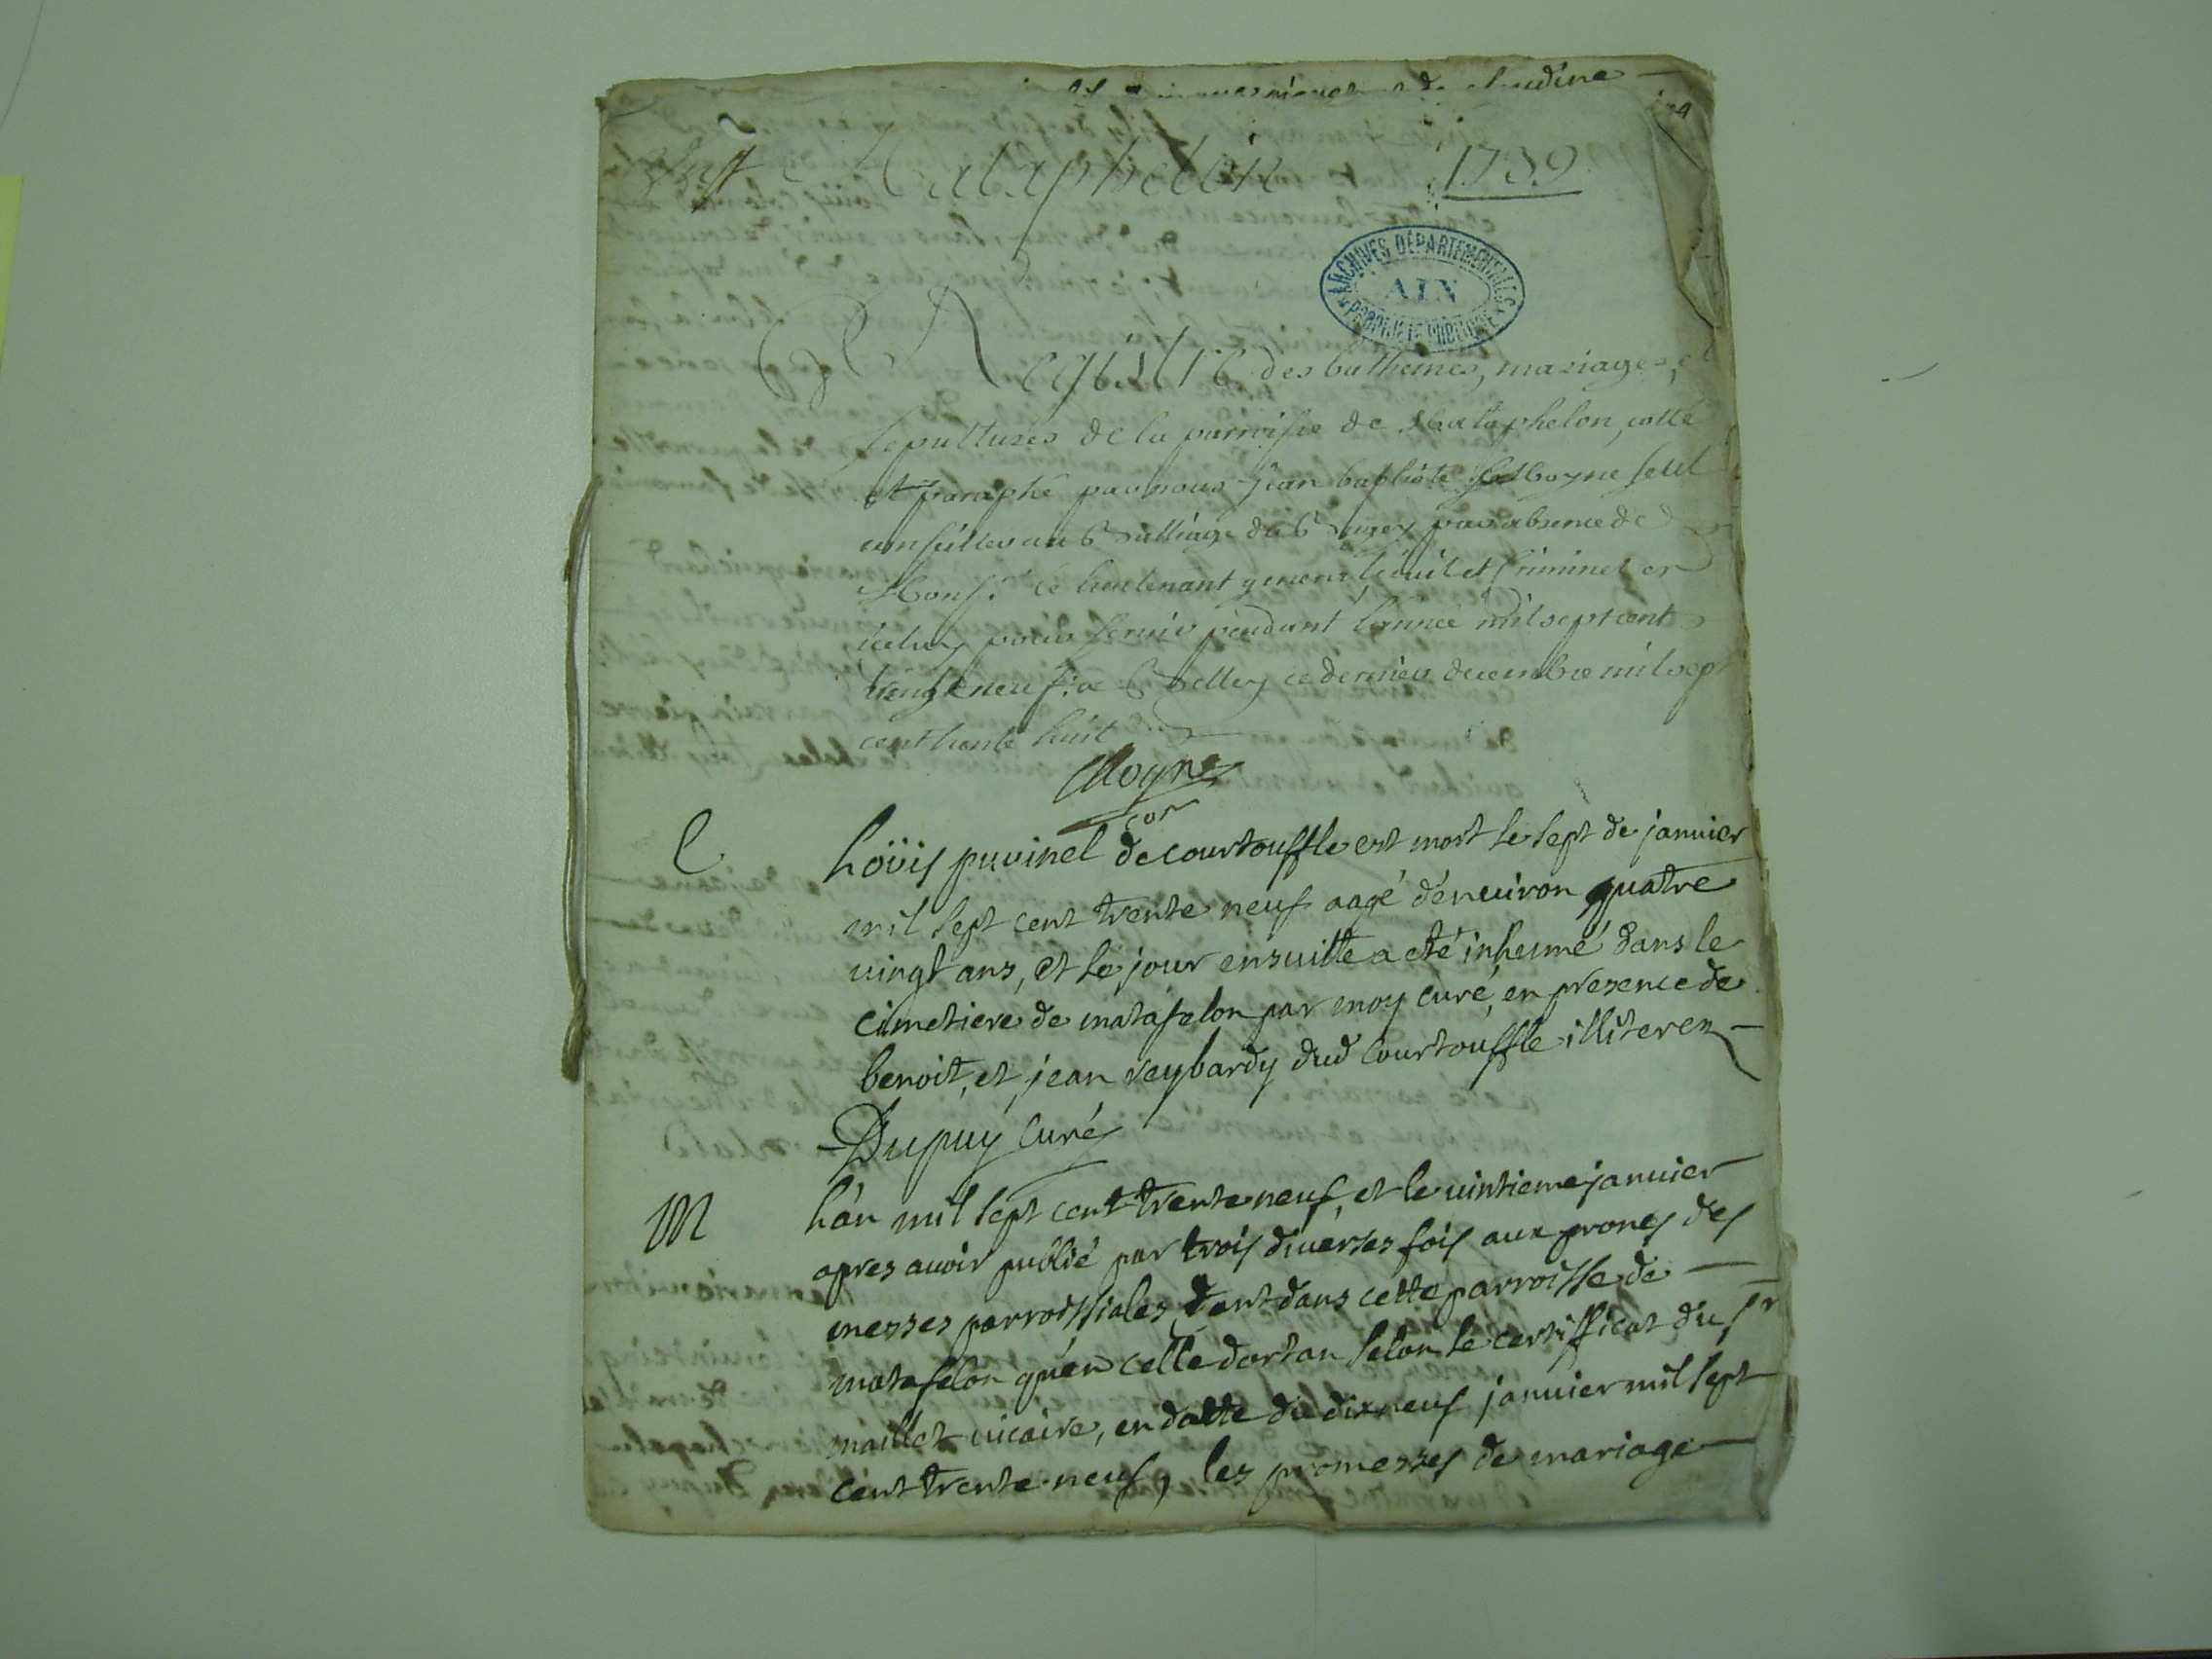 de claudine
Mataphelon 1739
ARCHIVES DÉPARTEMENTALES
AIN
Registre des bathemes, mariages, et
sepultures de la parroisse de Mataphelon, cotté
et paraphé par nous Jean baptiste Moyne seul
conseiller au Balliage de Bugey par absence de
Mons.r le lieutenant general civil et criminel en
iceluy pour servir pendant l'année mil sept cent
trente neuf: a Belley ce dernier decembre mil sept
cent trente huit
Moyne
con
C Loüis puvinel de courtouffle est mort le sept de janvier
mil sept cent trente neuf aagé d'environ quatre
vingt ans, et le jour ensuitte a eté inhumé dans le
cimetiere de matafelon par moy curé, en presence de
benoit, et jean reybardy dud courtouffle illiterez
Dupuy Curé
M L'an mil sept cent trente neuf, et le vintieme janvier
apres avoir publié par trois diverses fois aux prones des
messes parroissiales, tant dans cette parroisse de
matafelon qu'en celle dortan selon le certifficat du sr
maillet vicaire, en datte du dix neuf janvier mil sept
cent trente neuf, les promesses de mariage